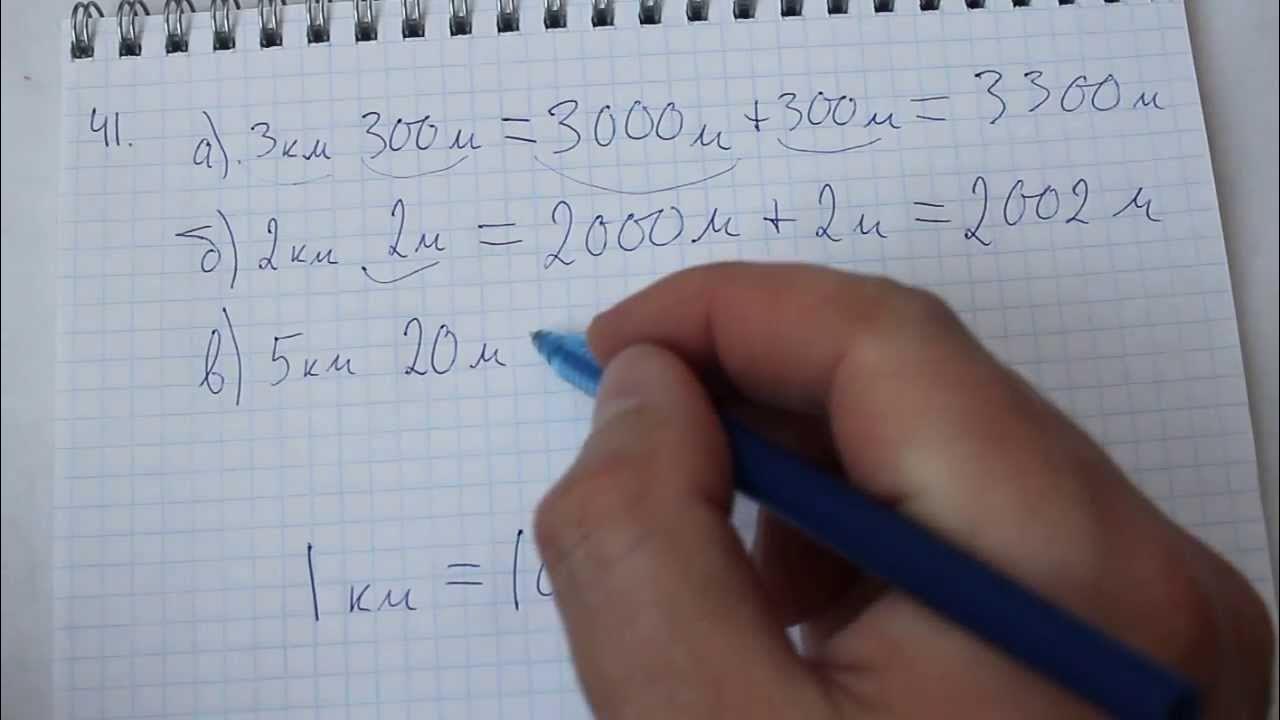 41. а). 3км 300м = 3000м + 300м = 3300м
б) 2км 2м = 2000м + 2м = 2002 м
в) 5км 20м
1 км =